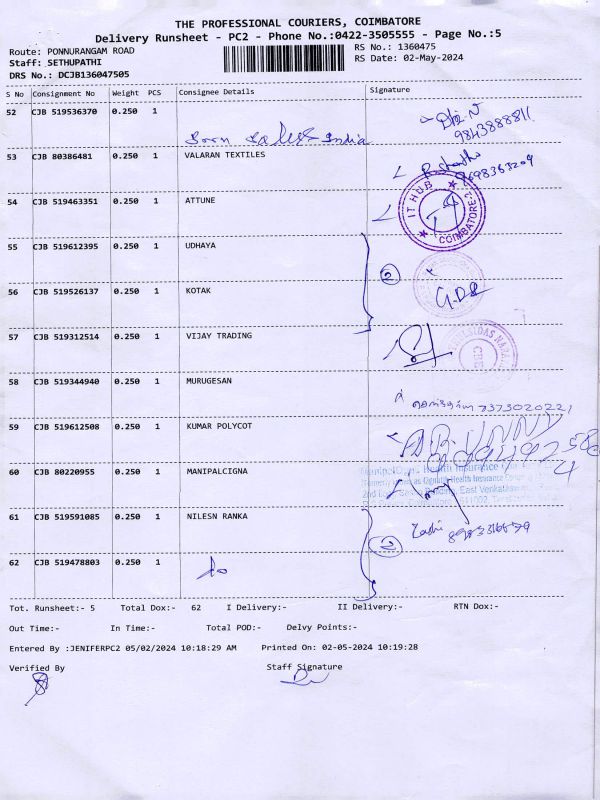 THE PROFESSIONAL COURIERS, COIMBATORE
Delivery Runsheet - PC2 - Phone No.:0422-3505555 - Page No.:5
Route: PONNURANGAM ROAD
RS No.: 1360475
Staff: SETHUPATHI
RS Date: 02-May-2024
DRS No.: DCJB136047505
S No Consignment No Weight PCS Consignee Details Signature
52 CJB 519536370 0.250 1
India
9843888811
53 CJB 80386481 0.250 1 VALARAN TEXTILES
9698363209
54 CJB 519463351 0.250 1 ATTUNE
IT HUB
COIMBATORE
55 CJB 519612395 0.250 1 UDHAYA
2
56 CJB 519526137 0.250 1 KOTAK
57 CJB 519312514 0.250 1 VIJAY TRADING
CBE
58 CJB 519344940 0.250 1 MURUGESAN
7373020221
59 CJB 519612508 0.250 1 KUMAR POLYCOT
60 CJB 80220955 1 0.250 MANIPALCIGNA
Health Insurance
Health Insurance
2nd East Venkatswamy
61 CJB 519591085 0.250 1 NILESN RANKA
2
62 CJB 519478803 0.250 1
Tot. Runsheet:- 5 Total Dox:- 62 I Delivery:- II Delivery:- RTN Dox:-
Out Time:- In Time:- Total POD:- Delvy Points:-
Entered By :JENIFERPC2 05/02/2024 10:18:29 AM Printed On: 02-05-2024 10:19:28
Verified By Staff Signature